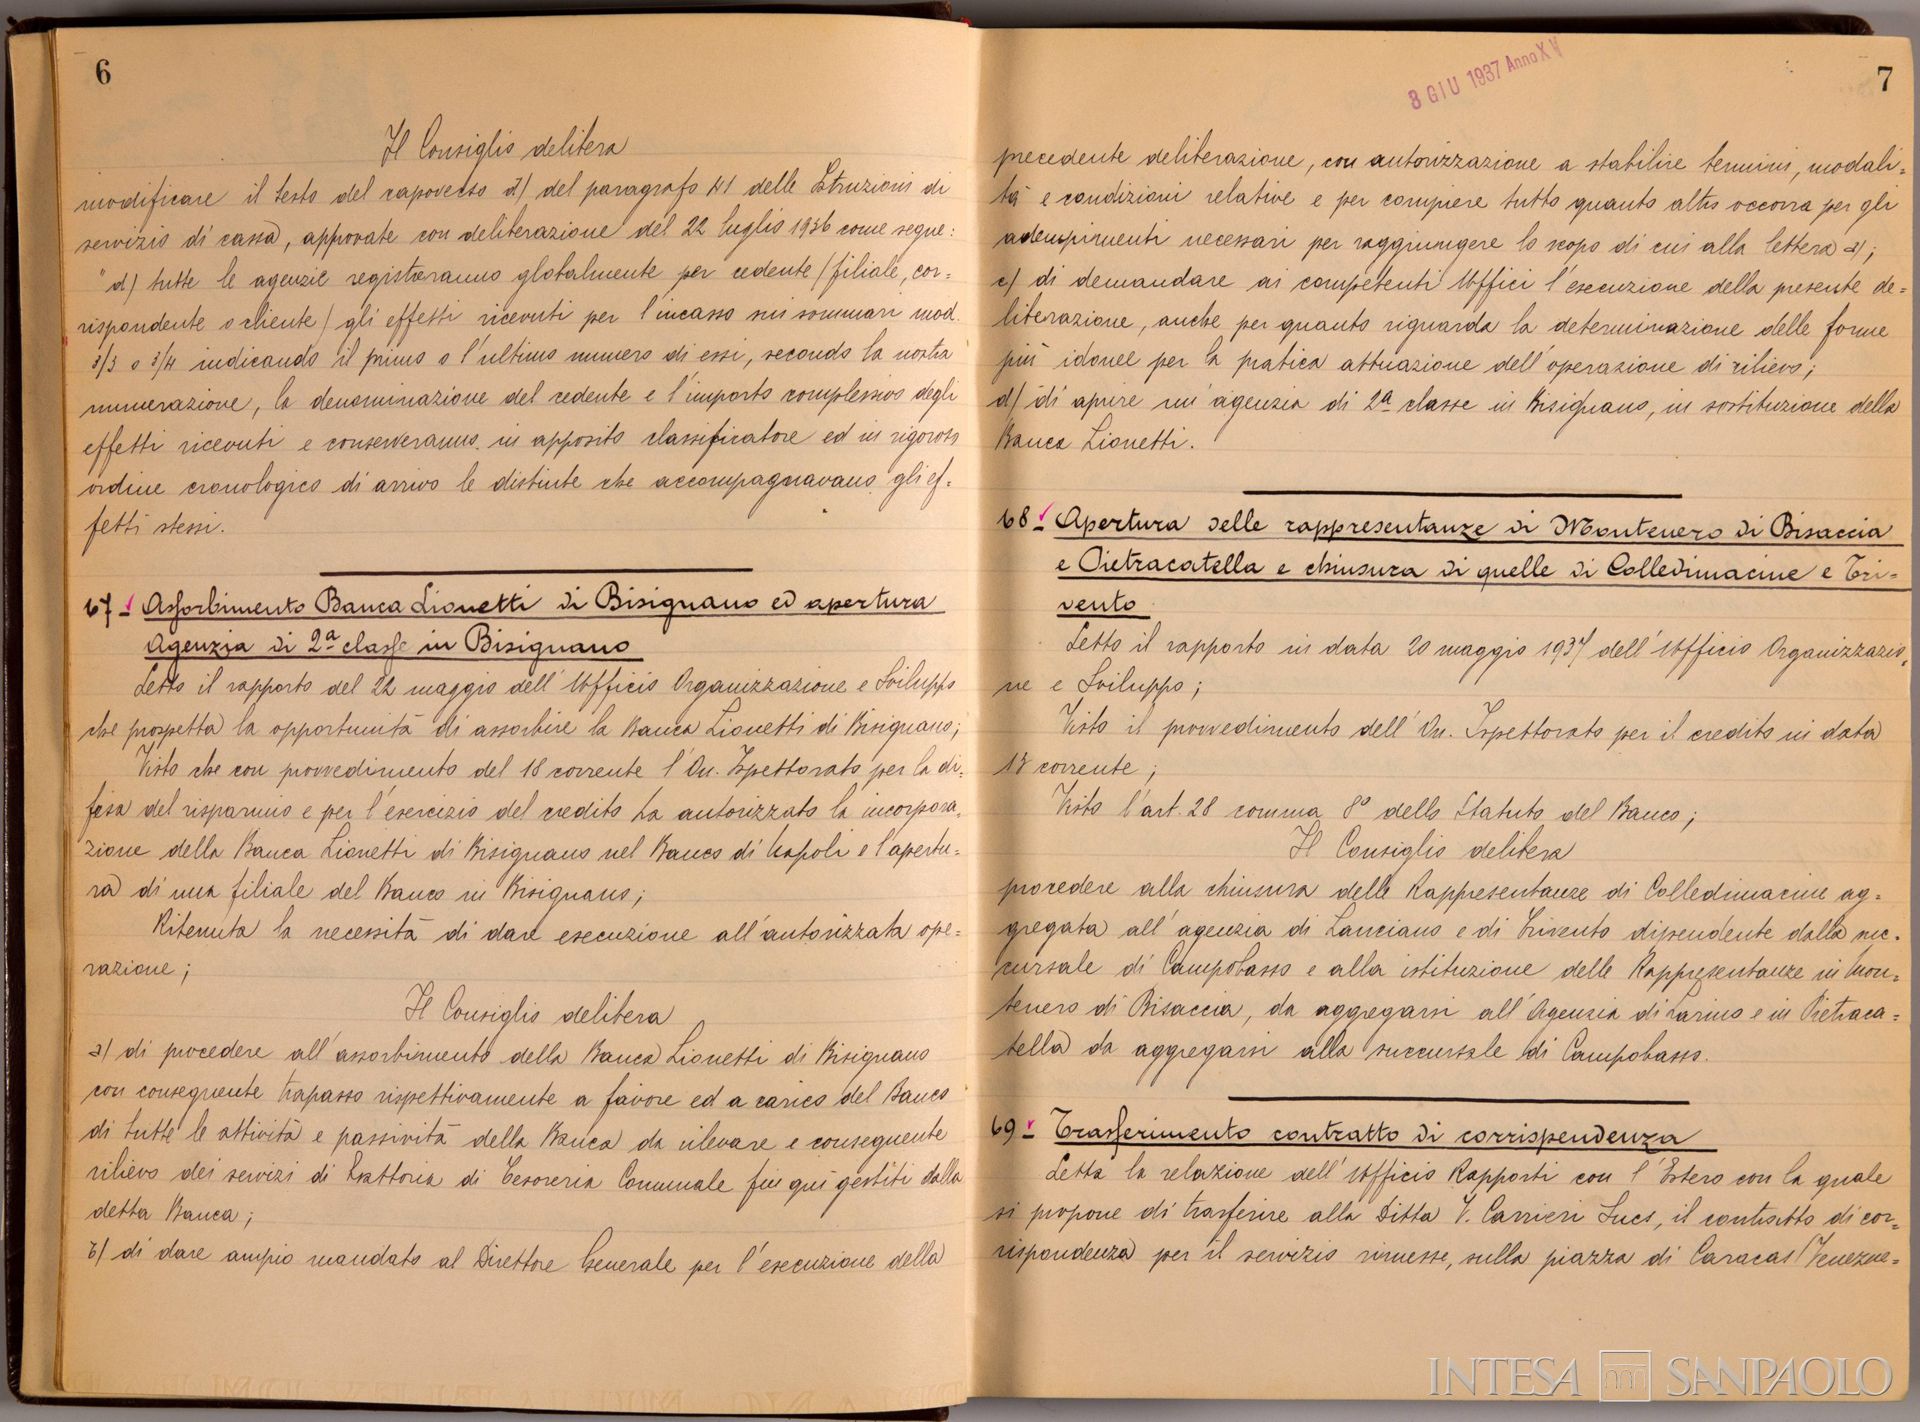 6
Il Consiglio delibera
modificare il testo del capoverso d) del paragrafo 41 delle Istruzioni di
servizio di cassa, approvate con deliberazione del 22 luglio 1936 come segue:
"d) tutte le agenzie registreranno globalmente per cedente (filiale, cor=
rispondente o cliente) gli effetti ricevuti per l'incasso sui sommari mod.
3/3 o 3/4 indicando il primo o l'ultimo numero di essi, secondo la nostra
numerazione, la denominazione del cedente e l'importo complessivo degli
effetti ricevuti e conserveranno in apposito classificatore ed in rigoroso
ordine cronologico di arrivo le distinte che accompagnavano gli ef=
fetti stessi.
67- Assorbimento Banca Lionetti di Bisignano ed apertura
Agenzia di 2ª classe in Bisignano
Letto il rapporto del 22 maggio dell'Ufficio Organizzazione e Sviluppo
che prospetta la opportunità di assorbire la Banca Lionetti di Bisignano;
Visto che con provvedimento del 18 corrente l'On. Ispettorato per la di=
fesa del risparmio e per l'esercizio del credito ha autorizzato la incorpora=
zione della Banca Lionetti di Bisignano nel Banco di Napoli e l'apertu=
ra di una filiale del Banco in Bisignano;
Ritenuta la necessità di dare esecuzione all'autorizzata ope=
razione;
Il Consiglio delibera
a) di procedere all'assorbimento della Banca Lionetti di Bisignano
con conseguente trapasso rispettivamente a favore ed a carico del Banco
di tutte le attività e passività della Banca da rilevare e conseguente
rilievo dei servizi di Esattoria di Tesoreria Comunale fin qui gestiti dalla
detta Banca;
b) di dare ampio mandato al Direttore Generale per l'esecuzione della
3 GIU 1937 Anno XV
7
precedente deliberazione, con autorizzazione a stabilire termini, modali=
tà e condizioni relative e per compiere tutto quanto altro occorra per gli
adempimenti necessari per raggiungere lo scopo di cui alla lettera a);
c) di demandare ai competenti Uffici l'esecuzione della presente de=
liberazione, anche per quanto riguarda la determinazione delle forme
più idonee per la pratica attuazione dell'operazione di rilievo;
d) di aprire un'agenzia di 2ª classe in Bisignano, in sostituzione della
Banca Lionetti.
68- Apertura delle rappresentanze di Montenero di Bisaccia
e Pietracatella e chiusura di quelle di Colledimacine e Tri=
vento
Letto il rapporto in data 20 maggio 1937 dell'Ufficio Organizzazio=
ne e Sviluppo;
Visto il provvedimento dell'On. Ispettorato per il credito in data
corrente;
Visto l'art. 28 comma 8º dello Statuto del Banco;
Il Consiglio delibera
procedere alla chiusura delle Rappresentanze di Colledimacine ag=
gregata all'agenzia di Lanciano e di Trivento dipendente dalla suc=
cursale di Campobasso e alla istituzione delle Rappresentanze in Mon=
tenero di Bisaccia, da aggregarsi all'Agenzia di Larino e in Pietraca=
tella da aggregarsi alla succursale di Campobasso.
69- Trasferimento contratto di corrispondenza
Letta la relazione dell'Ufficio Rapporti con l'Estero con la quale
si propone di trasferire alla Ditta V. Carrieri Sucs, il contratto di cor=
rispondenza per il servizio rimesse, sulla piazza di Caracas (Venezue=
INTESA SANPAOLO